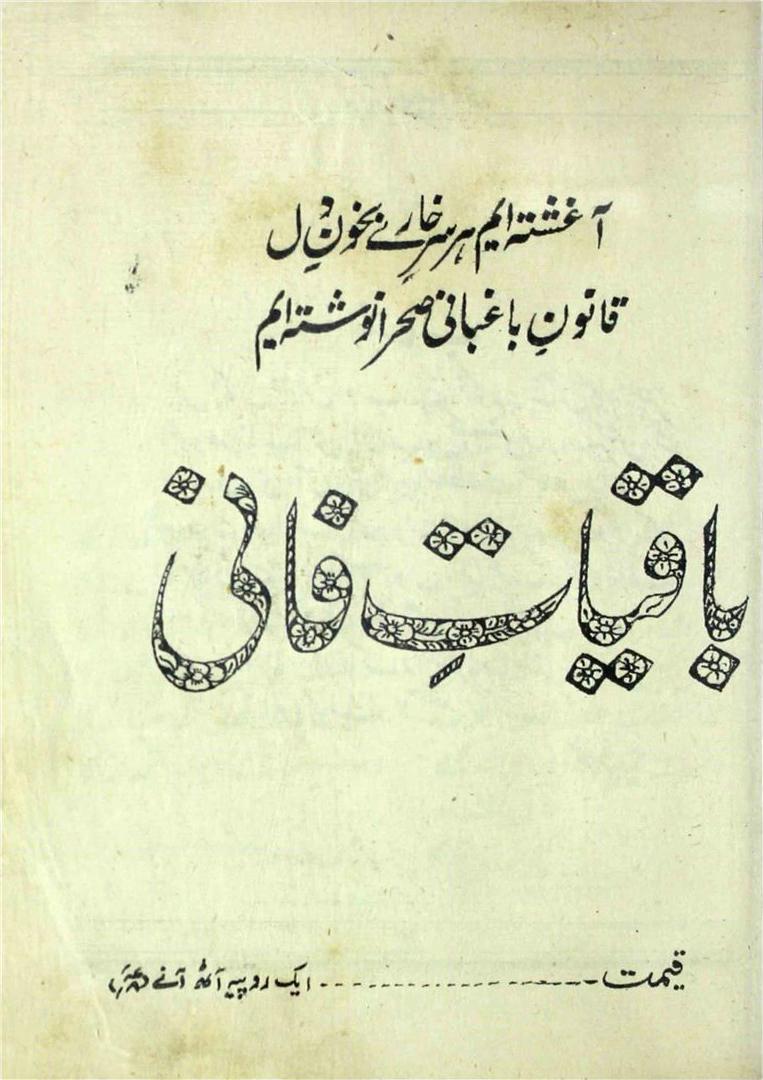 آغشتہ ایم ہر سرِ خارے بخونِ دل
قانونِ باغبانیِ صحرا نوشتہ ایم
باقیاتِ فانی
قیمت ------------------ ایک روپیہ آٹھ آنے